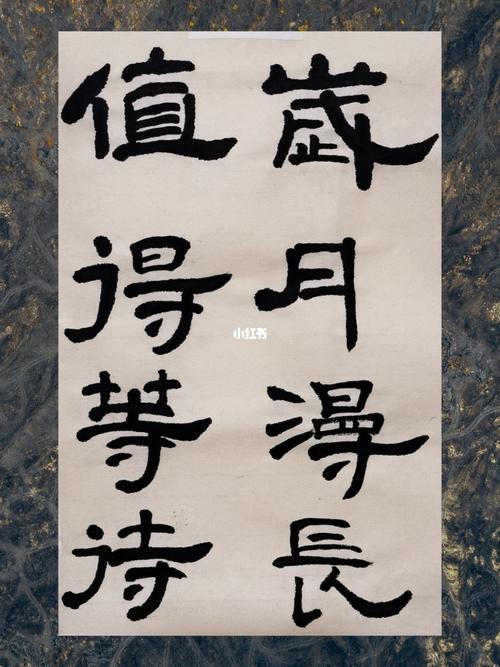 歲月漫長
值得等待
小红书